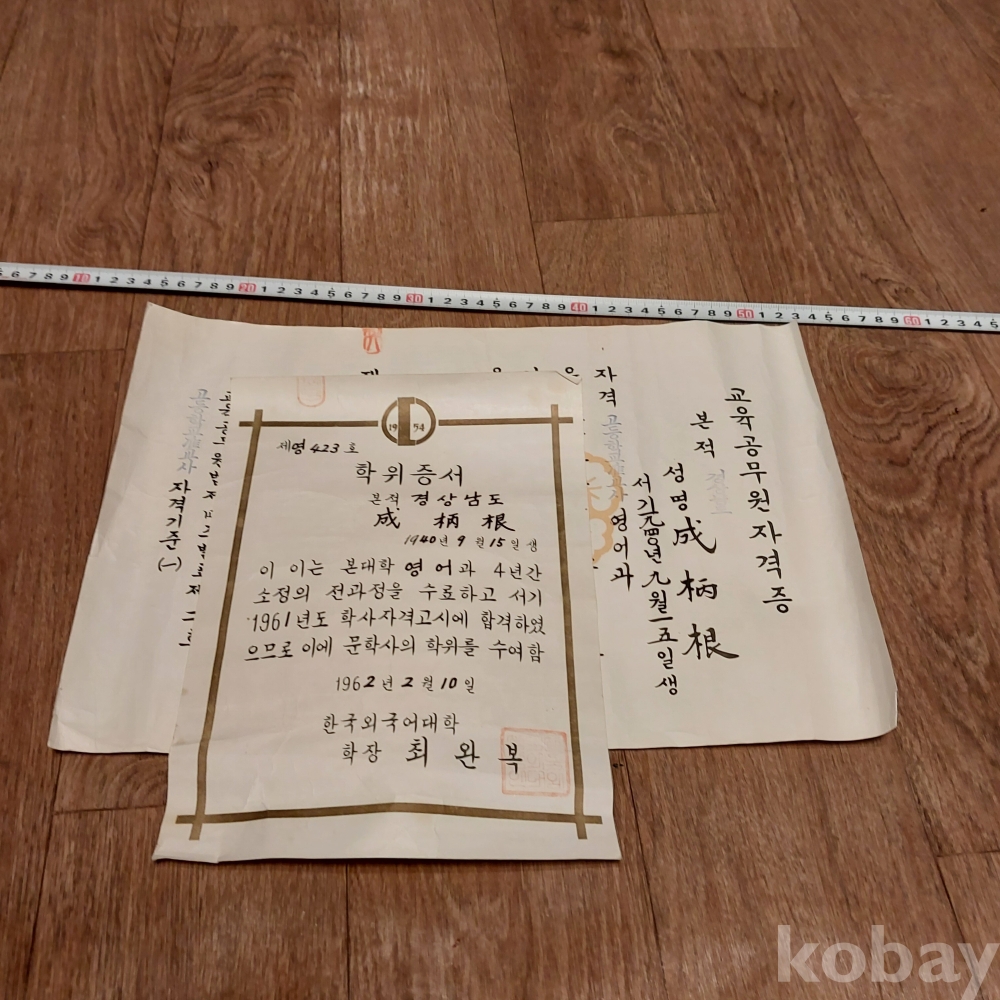 19 54
제 영 423 호
학위증서
본적 경상남도
成 柄 根
1940년 9월 15일생
이 이는 본대학 영어과 4년간
소정의 전과정을 수료하고 서기
1961년도 학사자격고시에 합격하였
으므로 이에 문학사의 학위를 수여함
1962년 2월 10일
한국외국어대학
학장 최완복
교육공무원자격증
본적
성명 成柄根
서기 一九四〇년 九월 一五일생
자격
영어과
고등학교준교사 자격기준(一)
5 6 7 8 9 10 1 2 3 4 5 6 7 8 9 20 1 2 3 4 5 6 7 8 9 30 1 2 3 4 5 6 7 8 9 40 1 2 3 4 5 6 7 8 9 50 1 2 3 4 5 6 7 8 9 60 1 2 3 4 5
kobay